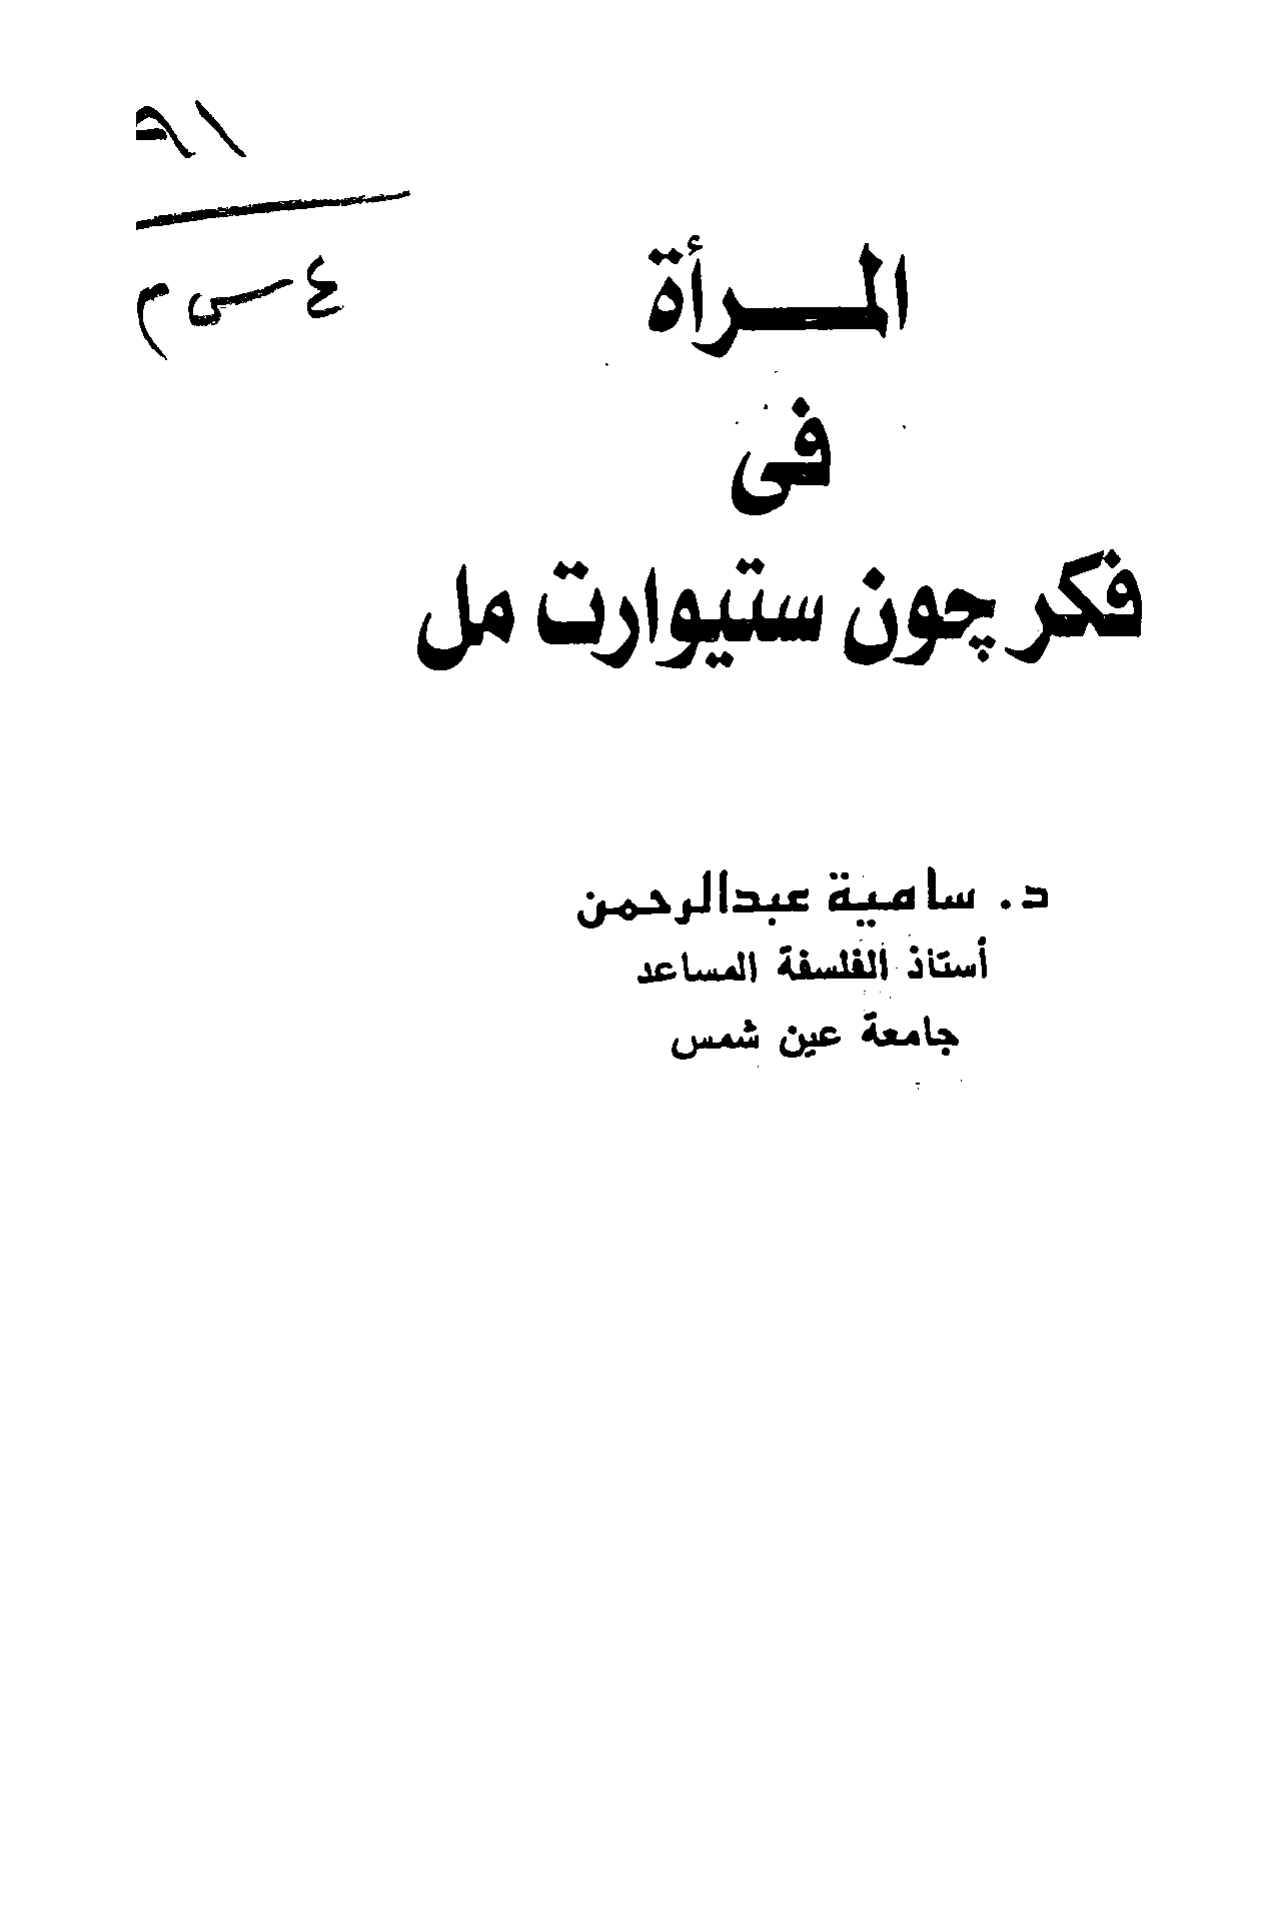 ٩١
٤ س م
المرأة
فى
فكر چون ستيوارت مل
د. سامية عبدالرحمن
أستاذ الفلسفة المساعد
جامعة عين شمس